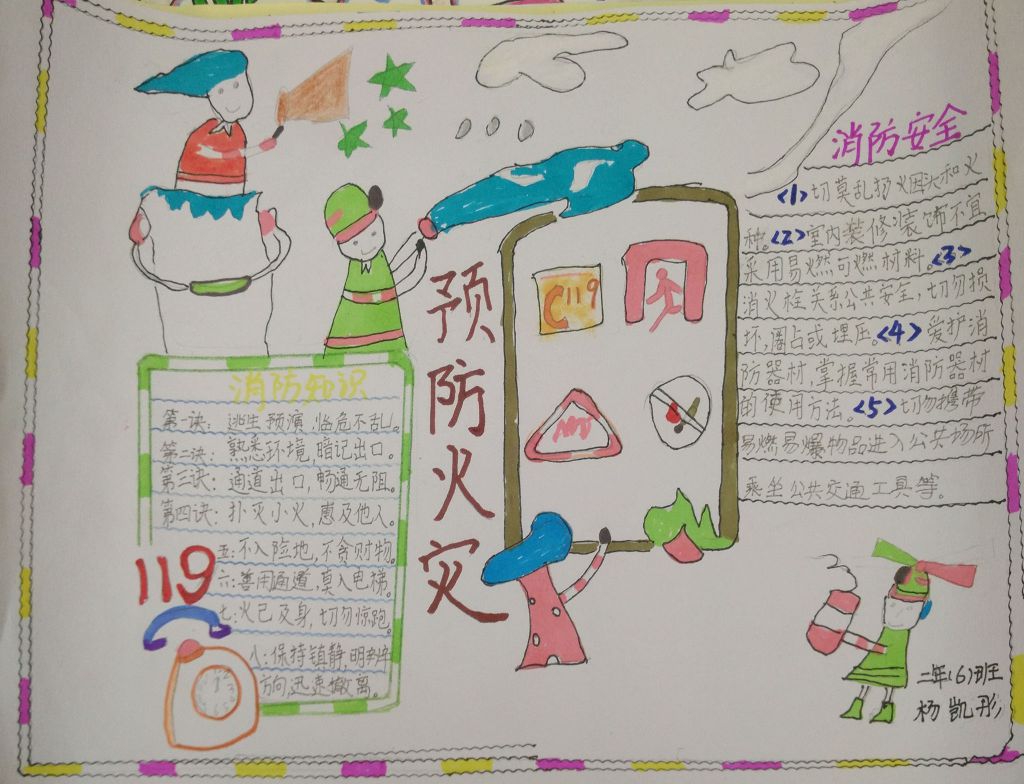 消防知识
第一诀：逃生预演，临危不乱。
第二诀：熟悉环境，暗记出口。
第三诀：通道出口，畅通无阻。
第四诀：扑灭小火，惠及他人。
五：不入险地，不贪财物。
六：善用通道，莫入电梯。
七：火已及身，切勿惊跑。
八：保持镇静，明辨
方向，迅速撤离。
119
预防火灾
C119
消防安全
<1>切莫乱扔火因头和火
种。<2>室内装修装饰不宜
采用易燃可燃材料。<3>
消火栓关系公共安全，切勿损
坏，圈占或埋压。<4>爱护消
防器材，掌握常用消防器材
的使用方法。<5>切勿携带
易燃易爆物品进入公共场所
乘坐公共交通工具等。
二年(6)班
杨凯彤